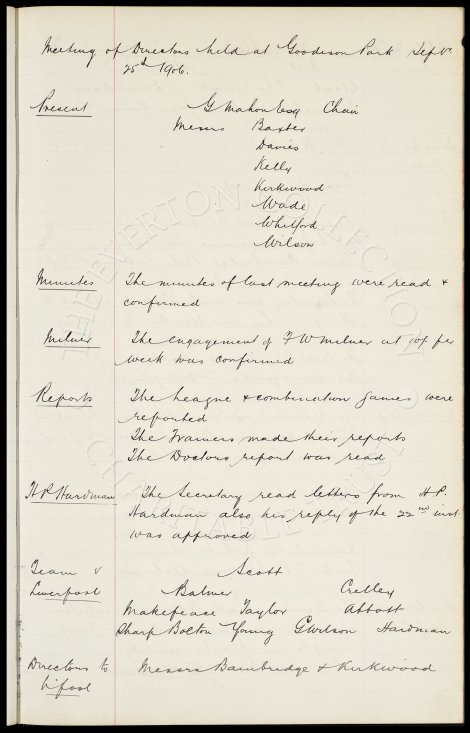 Meeting of Directors held at Goodison Park Septr
25th 1906.
Present G Mahon Esq Chair
Messrs Baxter
Davies
Kelly
Kirkwood
Wade
Whitford
Wilson
Minutes The minutes of last meeting were read &
confirmed
Milner The engagement of F W Milner at per
week was confirmed
Reports The League & combination games were
reported
The Trainers made their reports
The Doctors report was read
H P Hardman The Secretary read letters from H.P.
Hardman also his reply of the 22nd inst
was approved
Team v Scott
Liverpool Balmer Crelley
Makepeace Taylor Abbott
Sharp Bolton Young G Wilson Hardman
Directors to Messrs Bainbridge & Kirkwood
L'pool
THE EVERTON COLLECTION
CHARITABLE TRUST